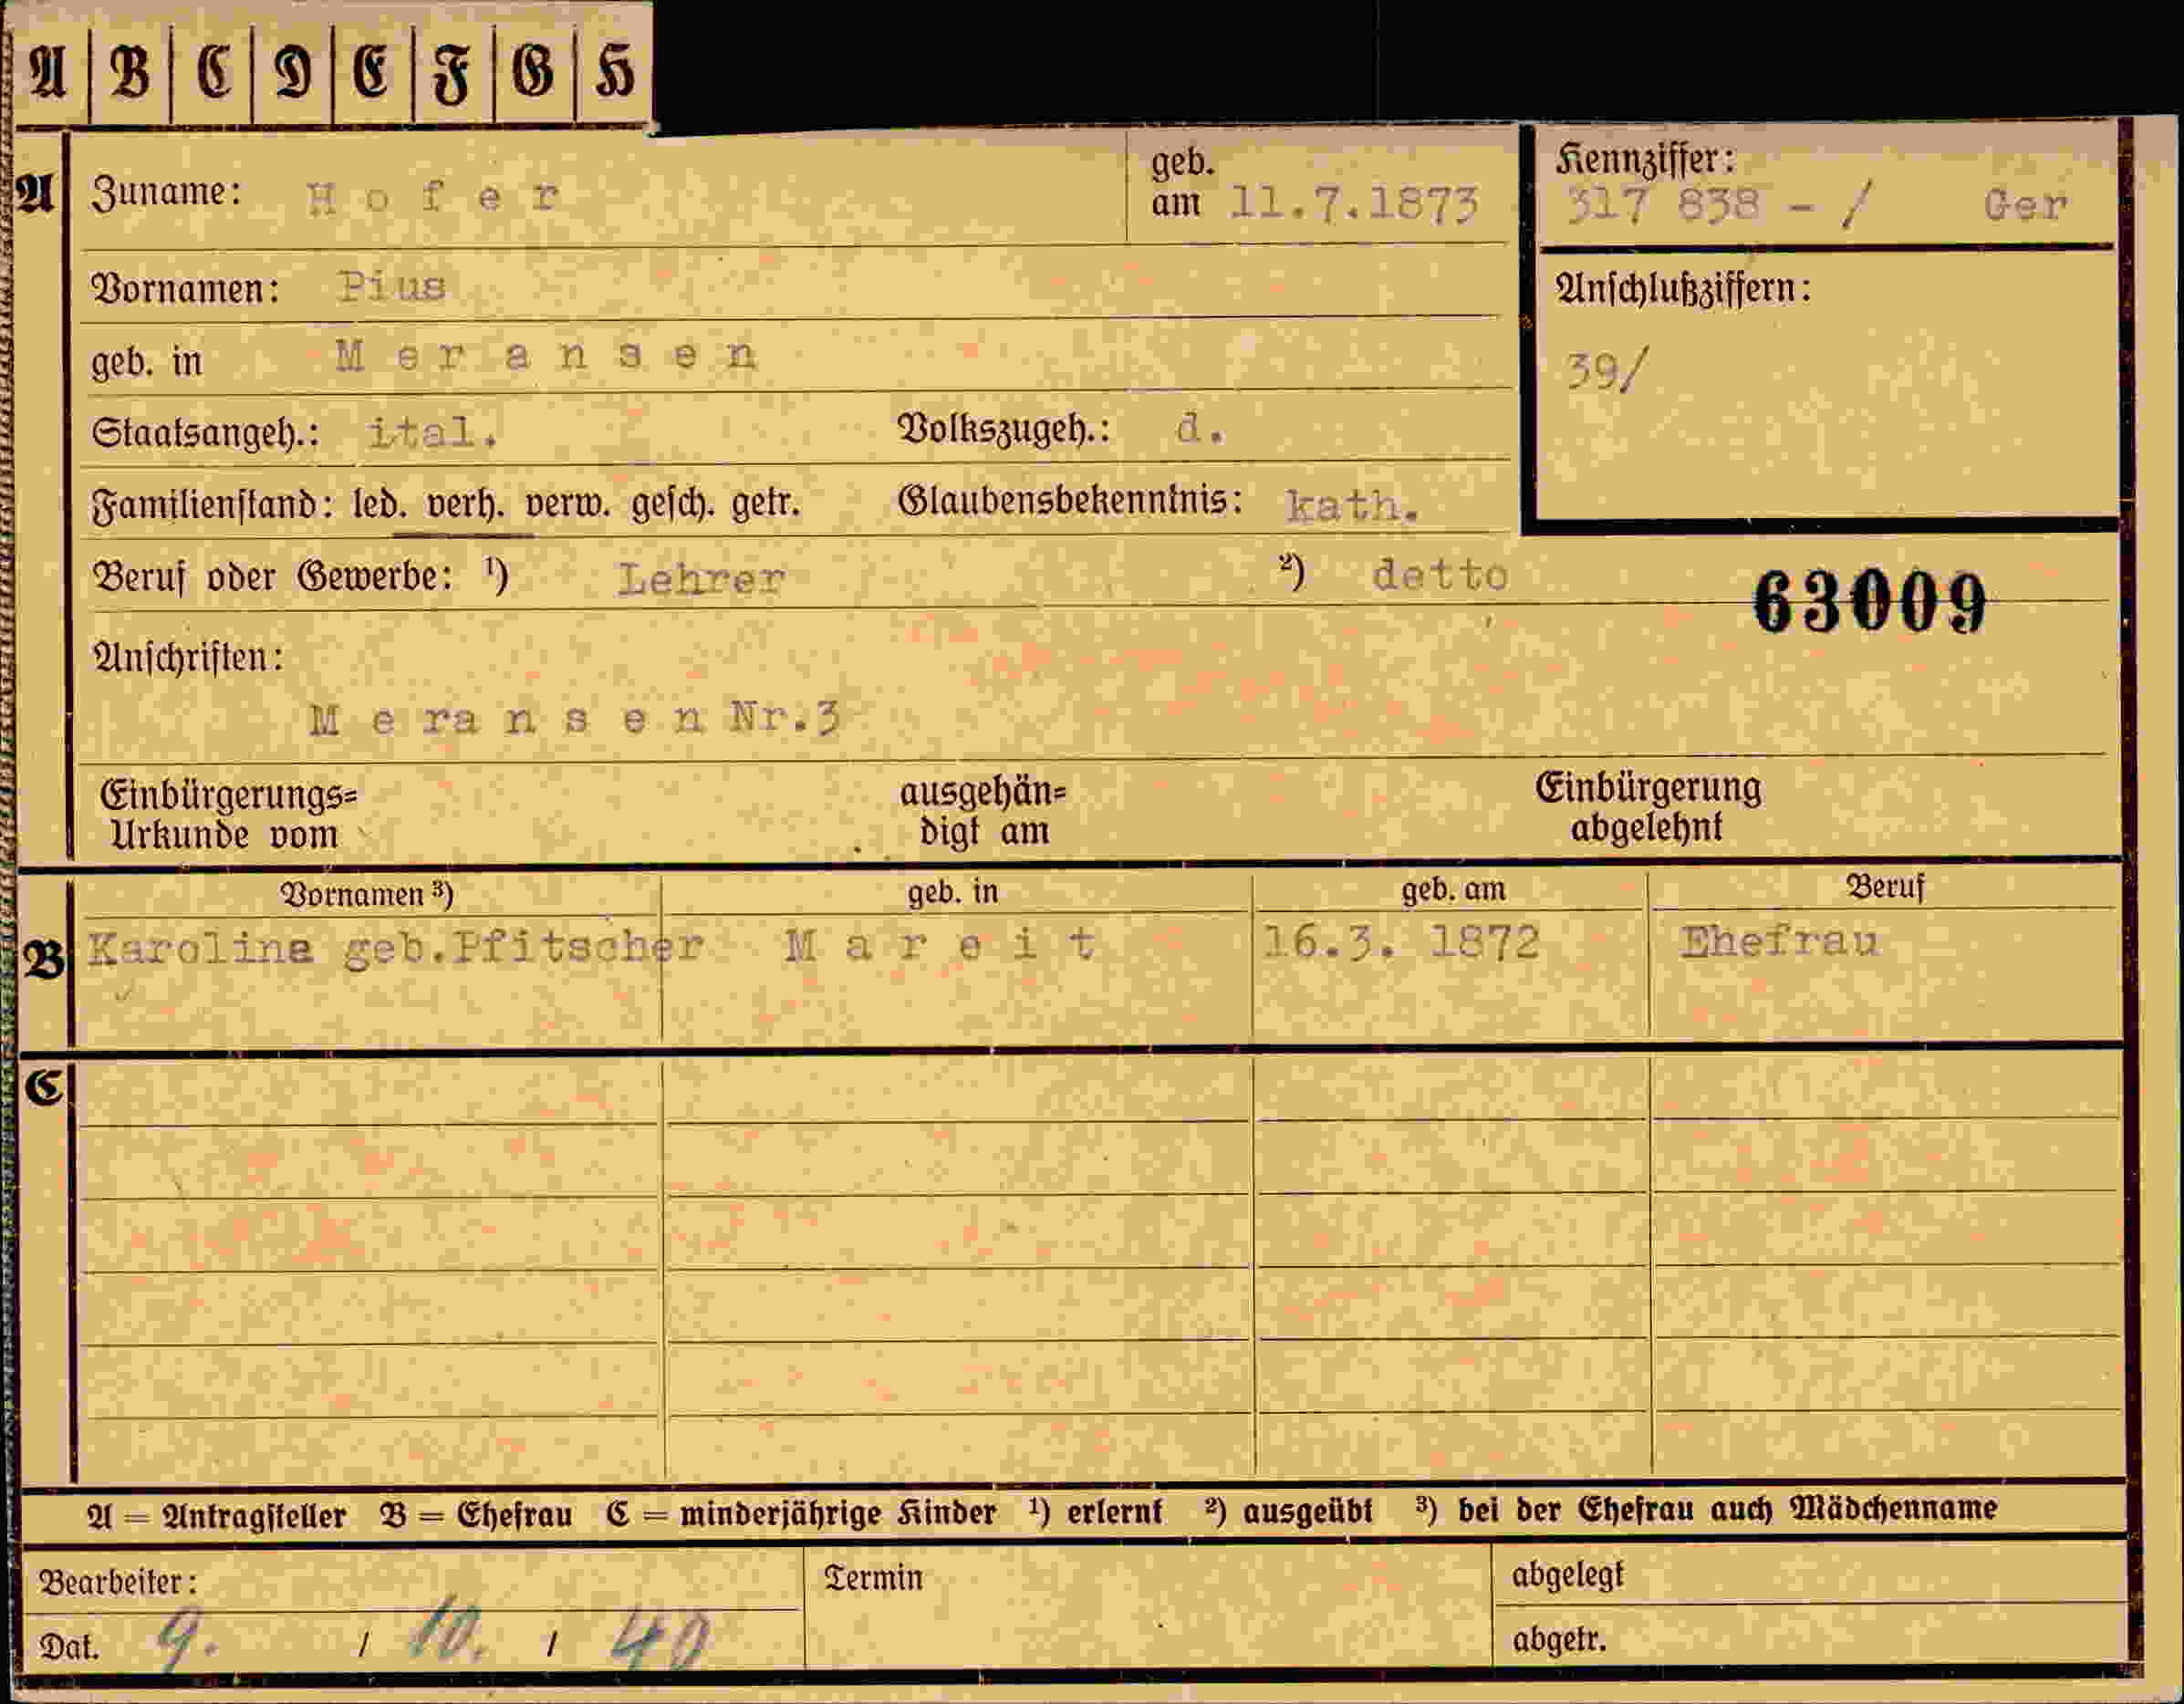 A | B | C | D | E | F | G | H
A Zuname: Hofer geb. am 11.7.1873 Kennziffer: 317 838 - / Ger
Vornamen: Pius Anschlußziffern:
geb. in Meransen 39/
Staatsangeh.: ital. Volkszugeh.: d.
Familienstand: led. verh. verw. gesch. getr. Glaubensbekenntnis: kath.
Beruf oder Gewerbe: ¹) Lehrer ²) detto 63009
Anschriften:
Meransen Nr.3
Einbürgerungs= ausgehän= Einbürgerung
Urkunde vom digt am abgelehnt
Vornamen ³) geb. in geb. am Beruf
B Karolina geb.Pfitscher Mareit 16.3. 1872 Ehefrau
C
A = Antragsteller B = Ehefrau C = minderjährige Kinder ¹) erlernt ²) ausgeübt ³) bei der Ehefrau auch Mädchenname
Bearbeiter: Termin abgelegt
Dat. 9. / 10. / 40 abgetr.